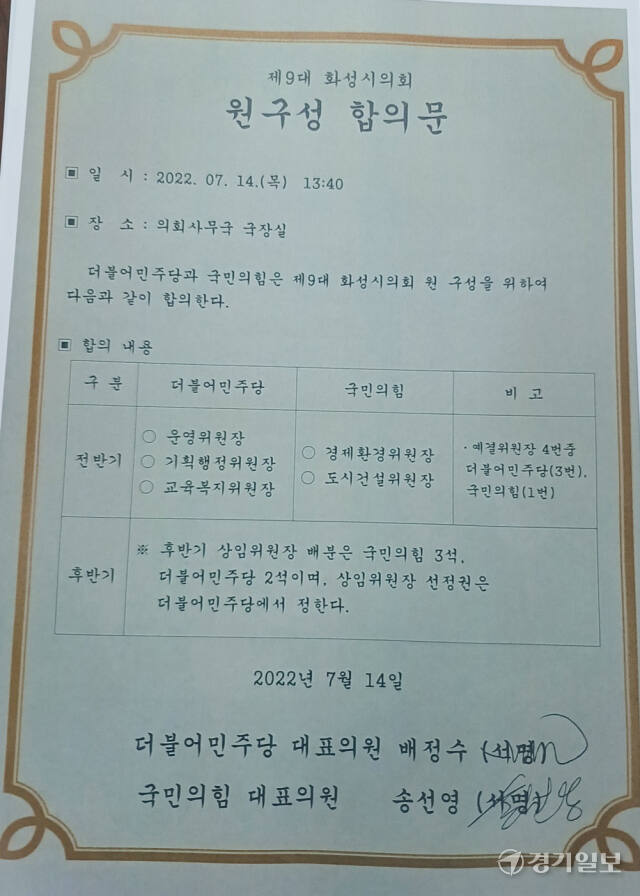 제9대 화성시의회
원구성 합의문
▣ 일 시 : 2022. 07. 14.(목) 13:40
▣ 장 소 : 의회사무국 국장실
더불어민주당과 국민의힘은 제9대 화성시의회 원 구성을 위하여
다음과 같이 합의한다.
▣ 합의 내용
구 분 더불어민주당 국민의힘 비 고
전반기
○ 운영위원장
○ 기획행정위원장
○ 교육복지위원장
○ 경제환경위원장
○ 도시건설위원장
· 예결위원장 4번중
더불어민주당(3번),
국민의힘(1번)
후반기
※ 후반기 상임위원장 배분은 국민의힘 3석,
더불어민주당 2석이며, 상임위원장 선정권은
더불어민주당에서 정한다.
2022년 7월 14일
더불어민주당 대표의원 배정수 (서명)
국민의힘 대표의원 송선영 (서명)
경기일보